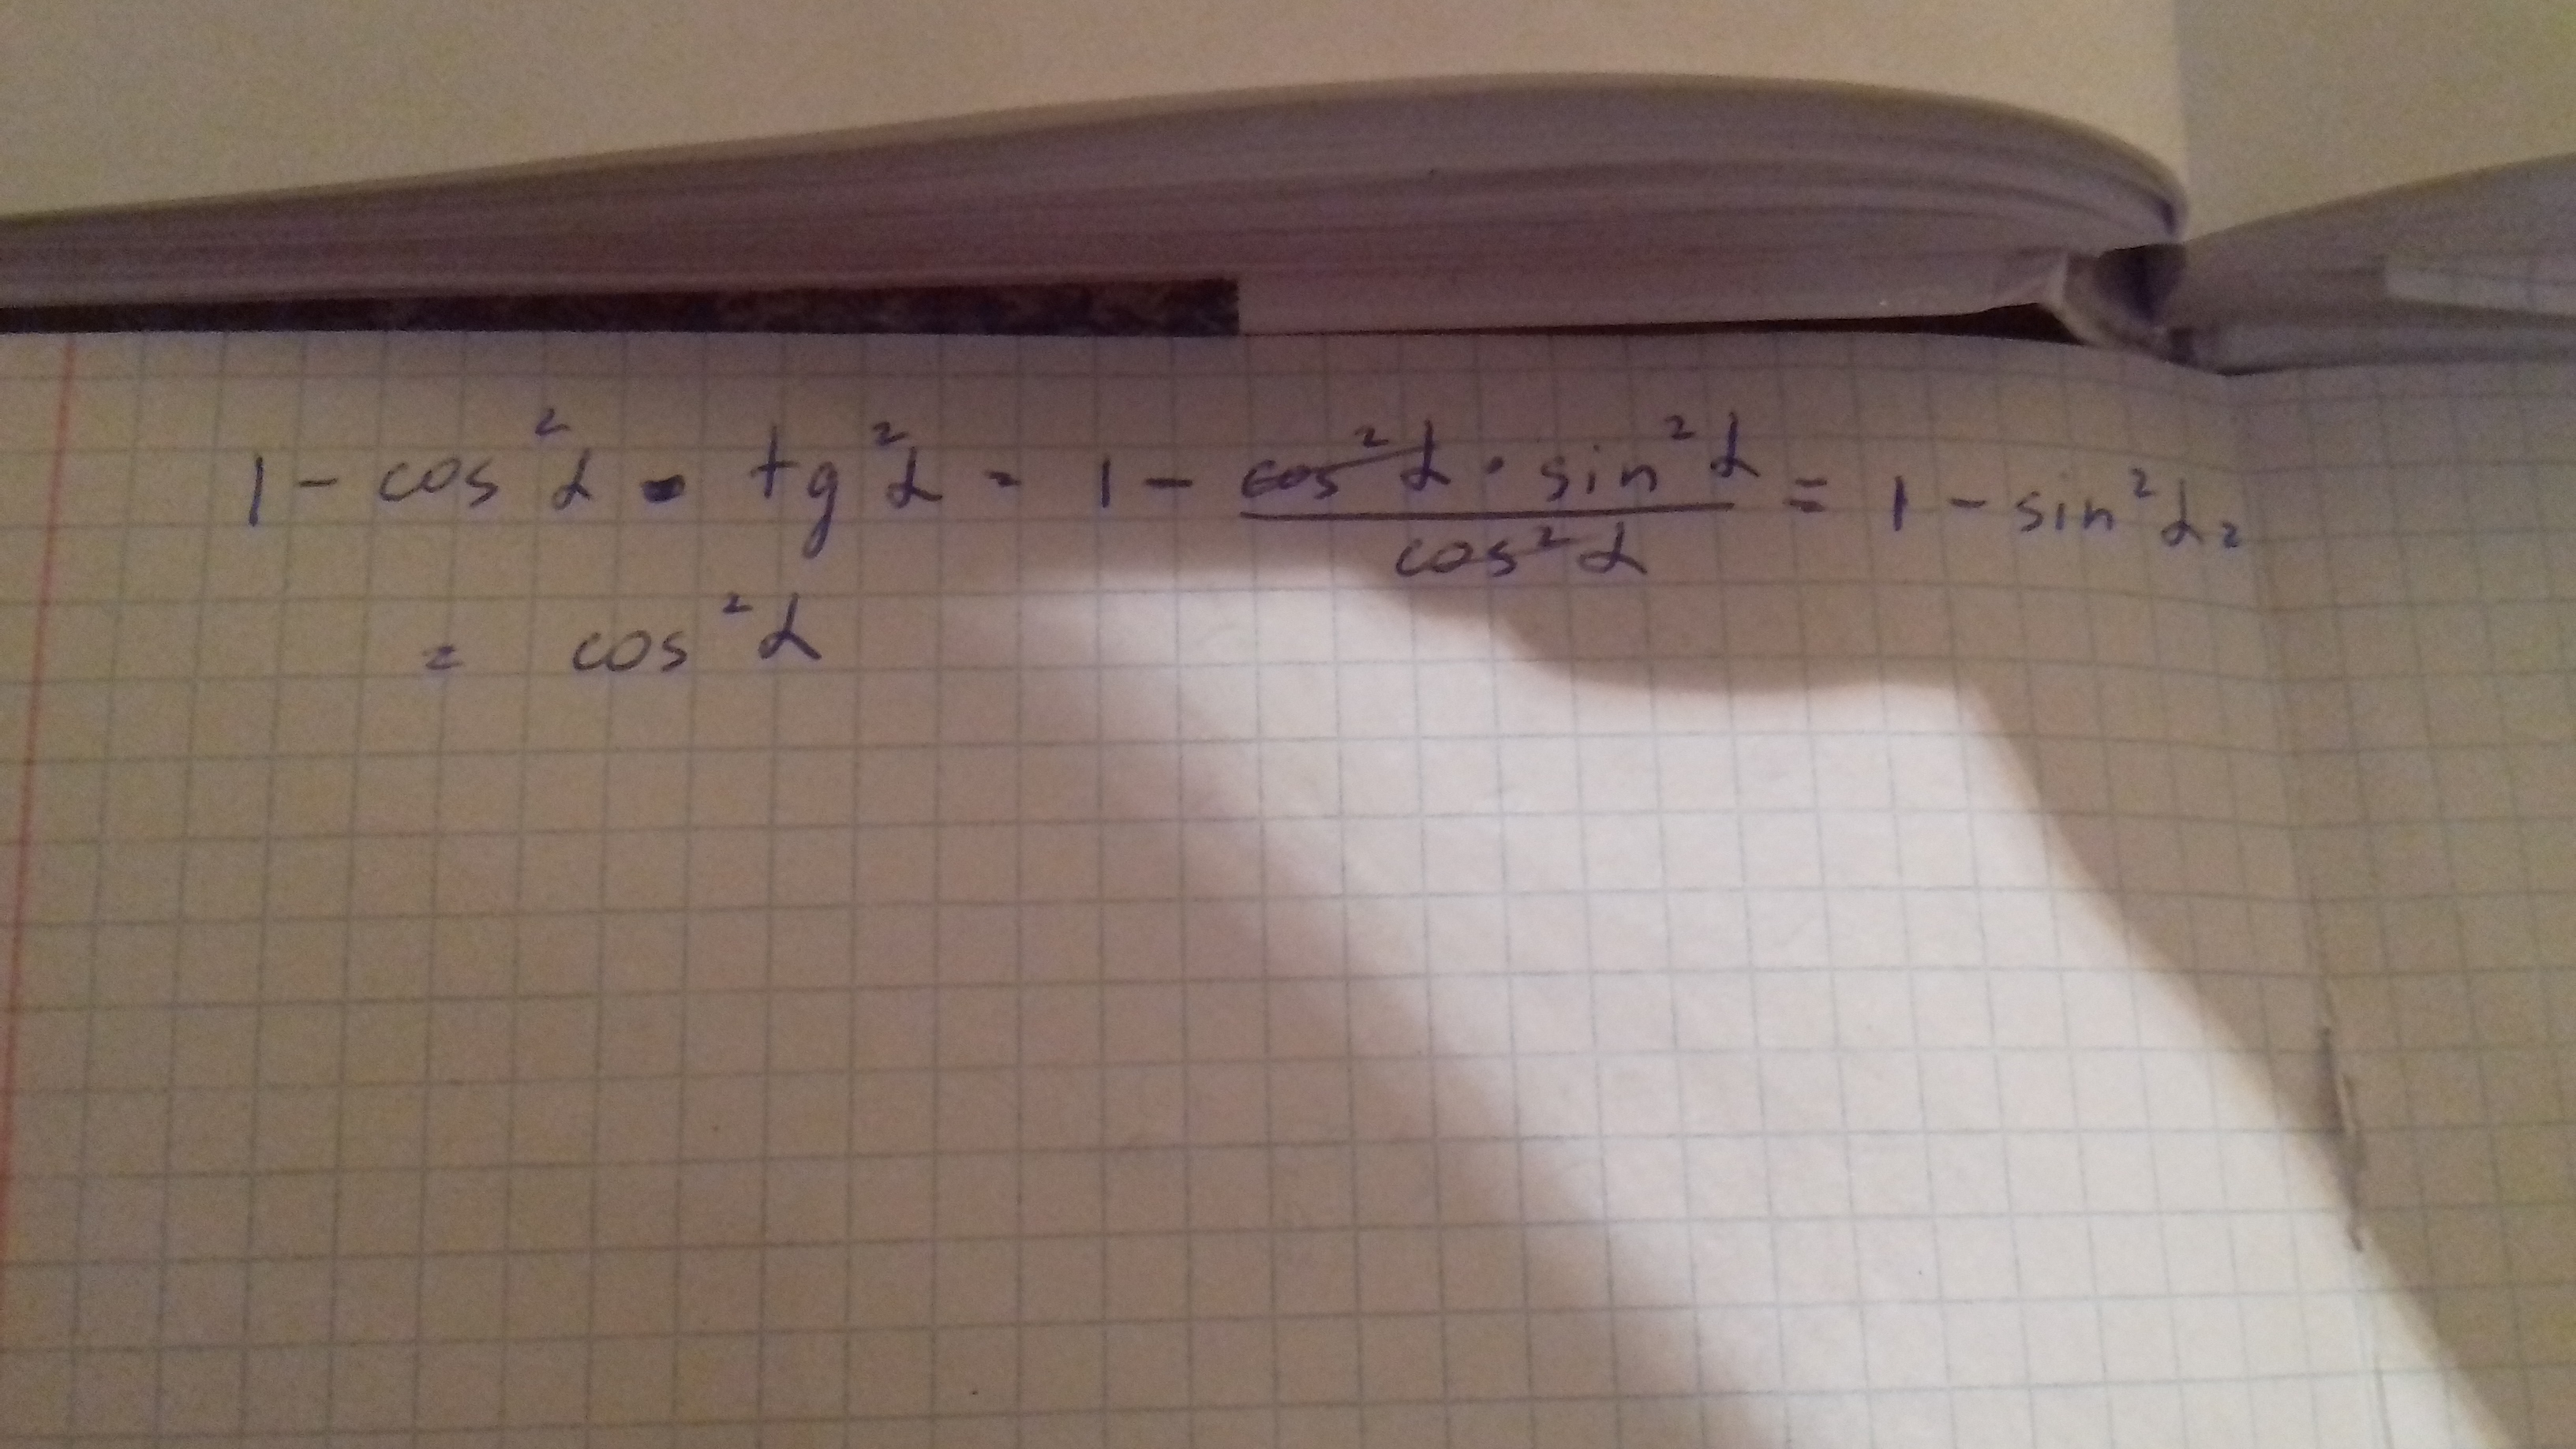 1 - cos²α • tg²α = 1 - (cos²α · sin²α)/(cos²α) = 1 - sin²α =
= cos²α